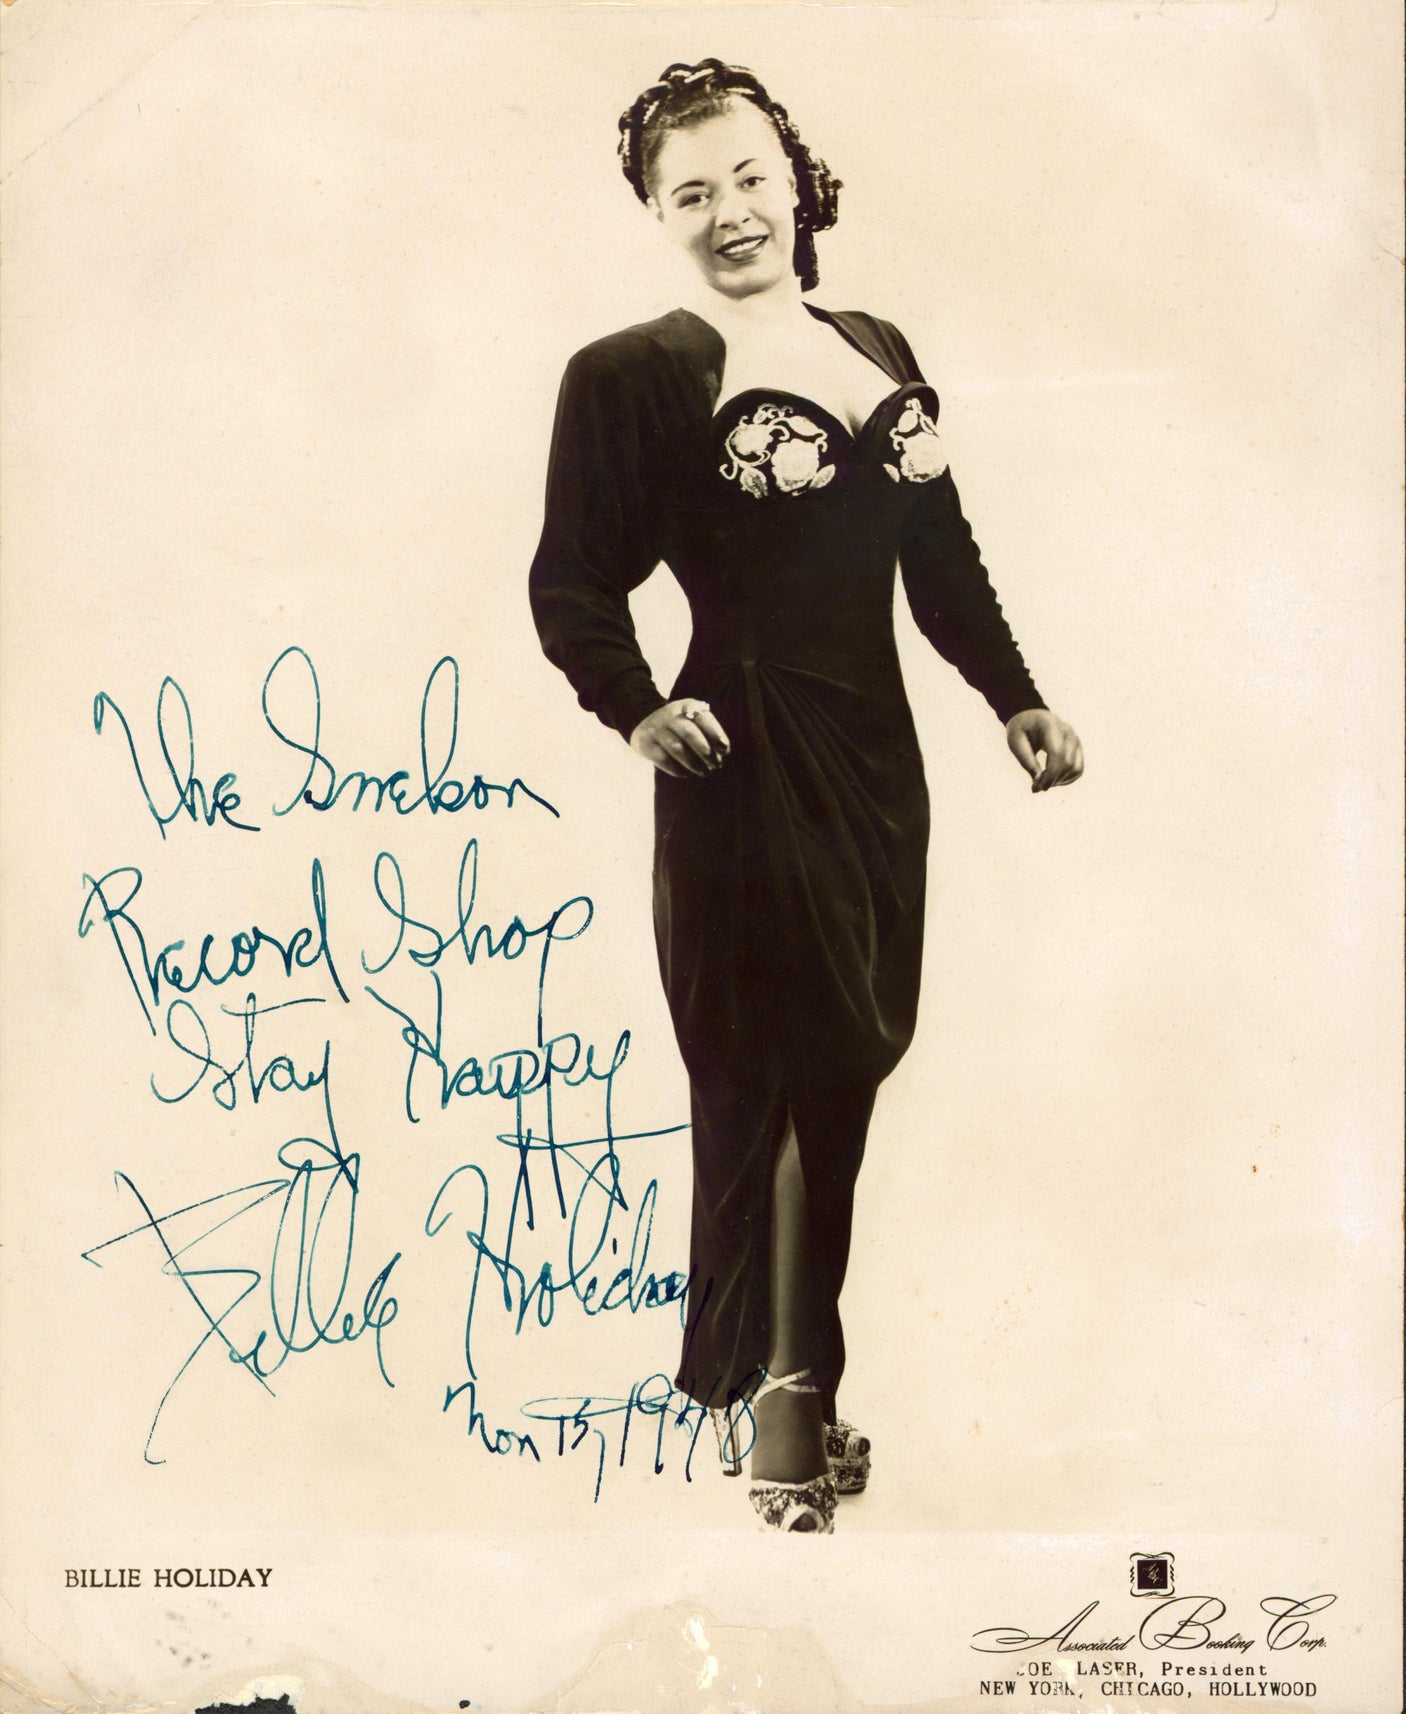 The
Record Shop
Stay Happy
Billie Holiday
1948
BILLIE HOLIDAY
Associated Booking Corp.
JOE GLASER, President
NEW YORK, CHICAGO, HOLLYWOOD